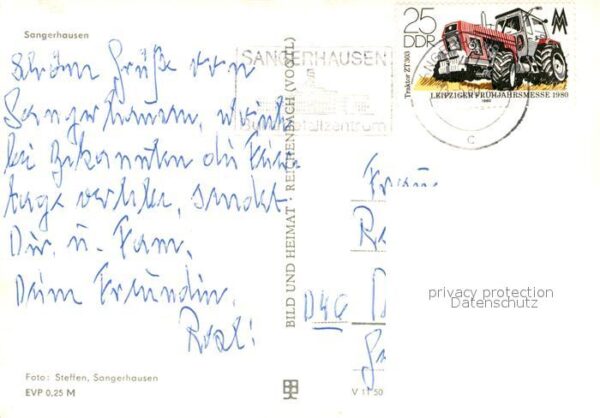 Sangerhausen
Schöne Grüße von
Sangerhausen, wo ich
bei Bekannten die Feier-
tage verlebe, sendet
Dir u. Fam.
Deine Freundin
Rosl!
Foto: Steffen, Sangerhausen
EVP 0,25 M
BILD UND HEIMAT · REICHENBACH (VOGTL)
V 11 50
SANGERHAUSEN
25
DDR
Traktor ZT 303
LEIPZIGER FRÜHJAHRSMESSE 1980
1980
C
Frau
privacy protection
Datenschutz